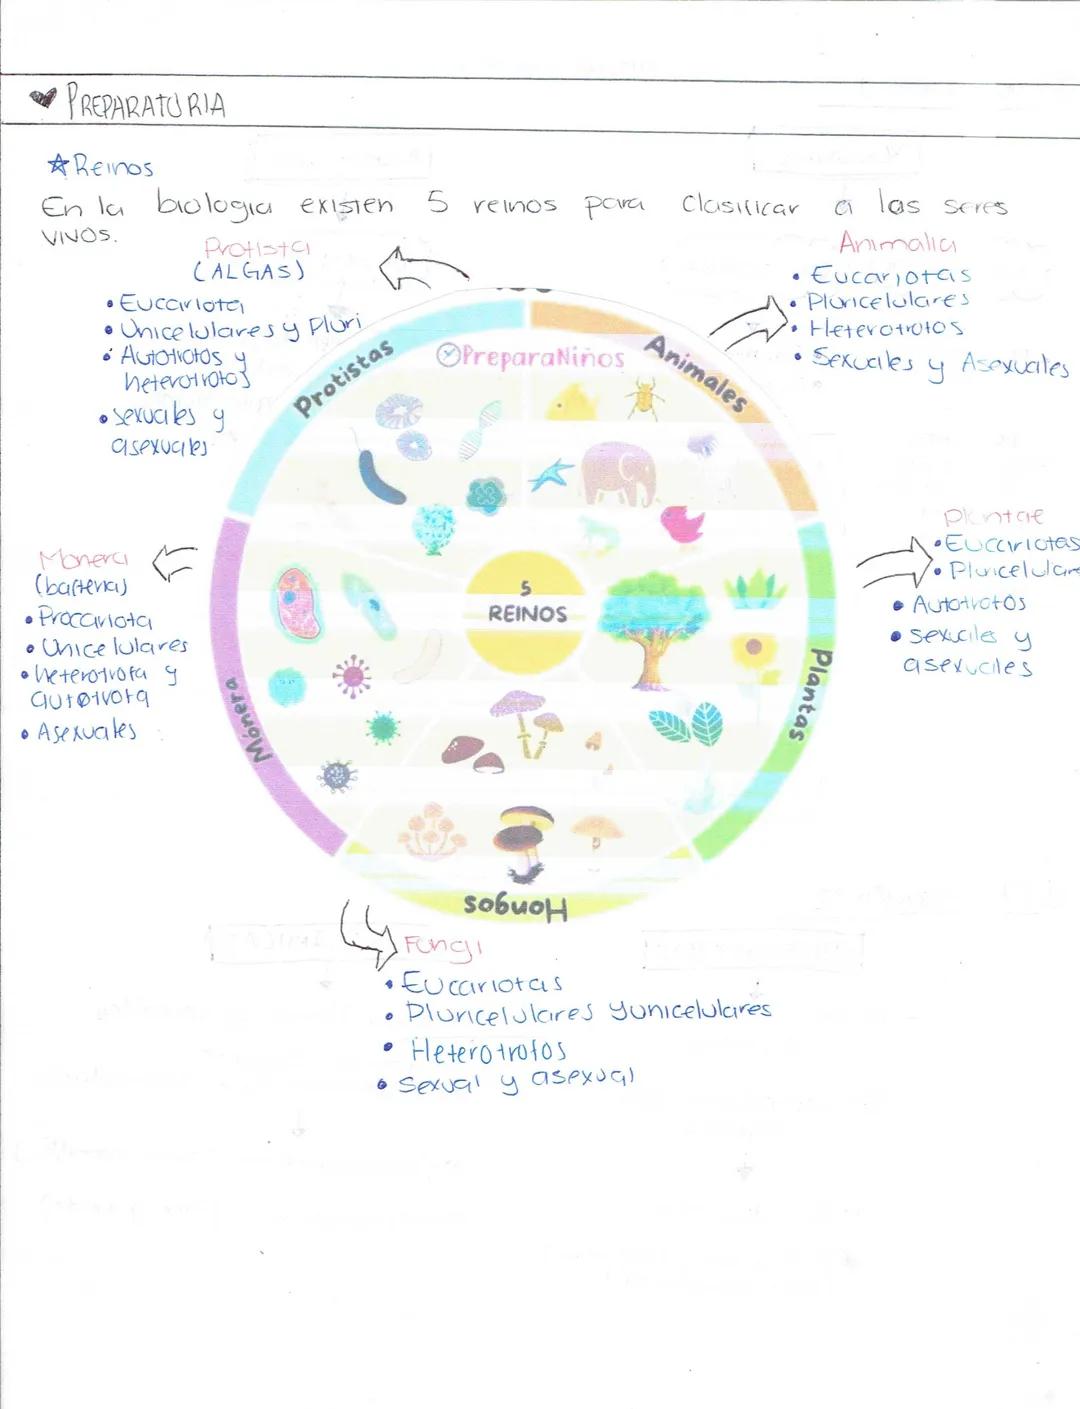 PREPARATORIA
Reinos
En la biologia existen 5 reinos para clasificar a los seres
vivos.
Protista
(ALGAS)
• Eucariota
• Unicelulares y Pluri
• Autotrofos y
heterotrofos
• sexuales y
asexuales
Animalia
• Eucariotas
• Pluricelulares
• Heterotrofos
• Sexuales y Asexuales
Protistas
PreparaNiños
Animales
Monera
(bacteria)
• Procariota
• Unicelulares
• heterotrofa y
autotrofa
• Asexuales
5
REINOS
Plantae
• Eucariotas
• Pluricelulare
• Autotrofos
• sexuales y
asexuales
Mónera
Plantas
Hongos
Fungi
• Eucariotas
• Pluricelulares y unicelulares
• Heterotrofos
• Sexual y asexual